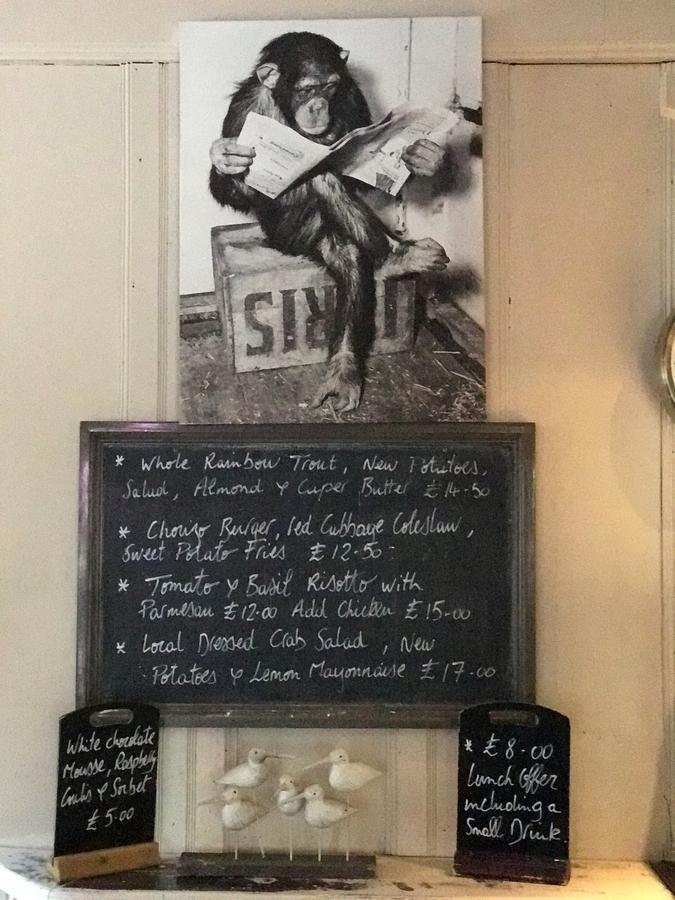 SIRIS
* Whole Rainbow Trout, New Potatoes,
Salad, Almond & Caper Butter £14-50
* Chorizo Burger, red Cabbage Coleslaw,
Sweet Potato Fries £12-50-
* Tomato & Basil Risotto with
Parmesan £12.00 Add Chicken £15-00
* Local Dressed Crab Salad, New
Potatoes & Lemon Mayonnaise £17-00
White chocolate
Mousse, Raspberry
Coulis & Sorbet
£5.00
* £8-00
Lunch Offer
including a
Small Drink.